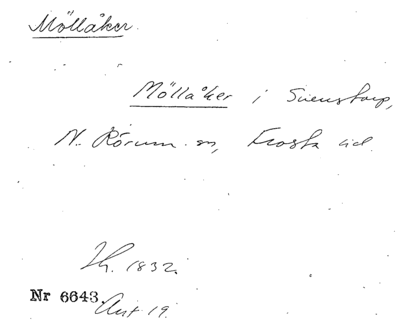 Möllåker
Möllåker i Svenstorp,
N. Rörum sn, Frosta hd.
1832.
Nr 6643.
Akt 19.